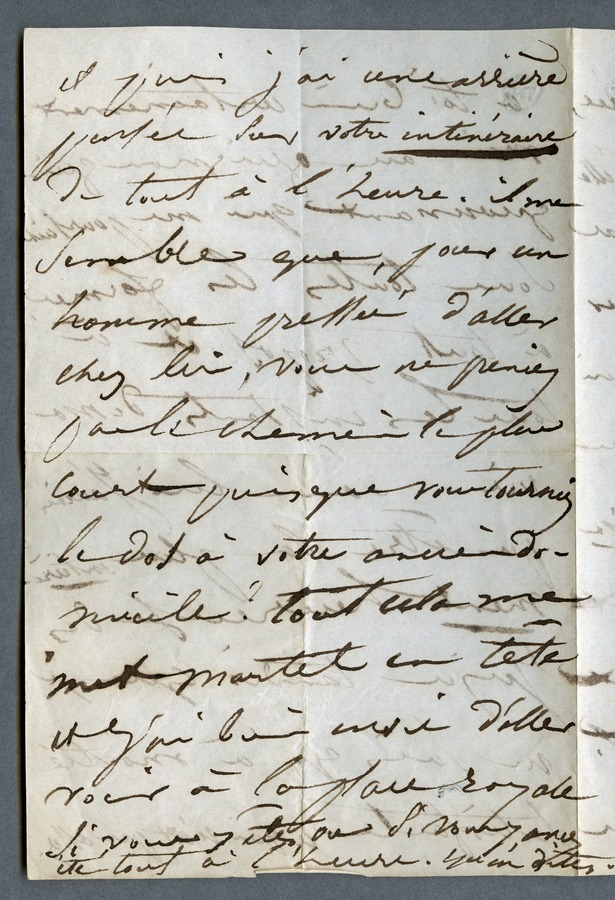 et puis j'ai une arrière
pensée sur votre intinéraire
de tout à l'heure. il me
semble que, pour un
homme pressé d'aller
chez lui, vous ne preniez
pas le chemin le plus
court puisque vous tourniez
le dos à votre ancien do-
micile? tout cela me
met martel en tête
et j'ai bien envie d'aller
voir à la place royale
si vous y êtes, ou si vous y avez
été tout à l'heure. qu'en dites